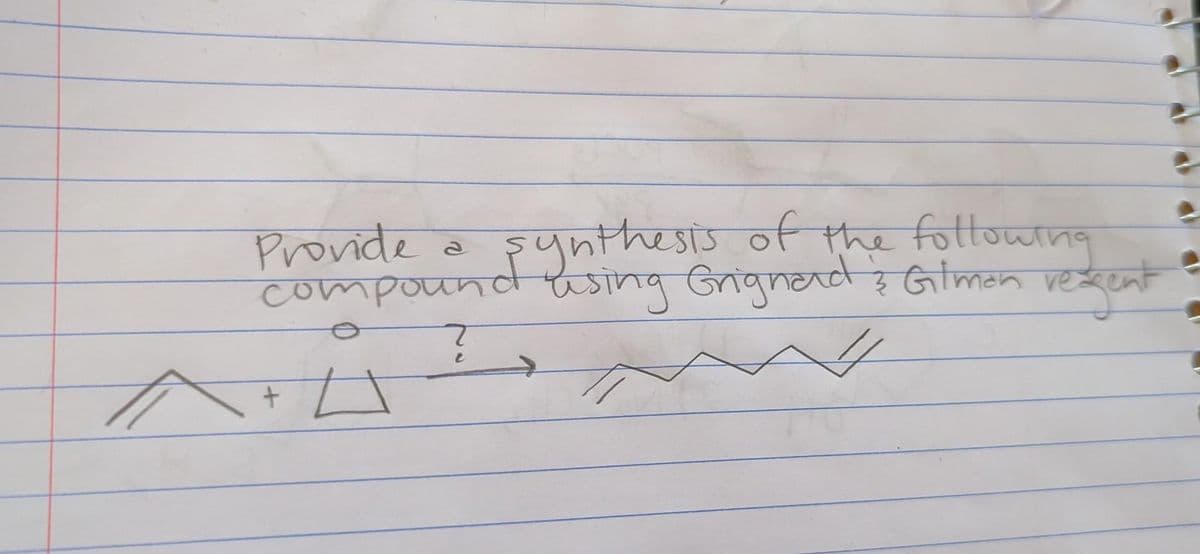 Provide a synthesis of the following
compound using Grignard & Gilman reagent
O ?
+